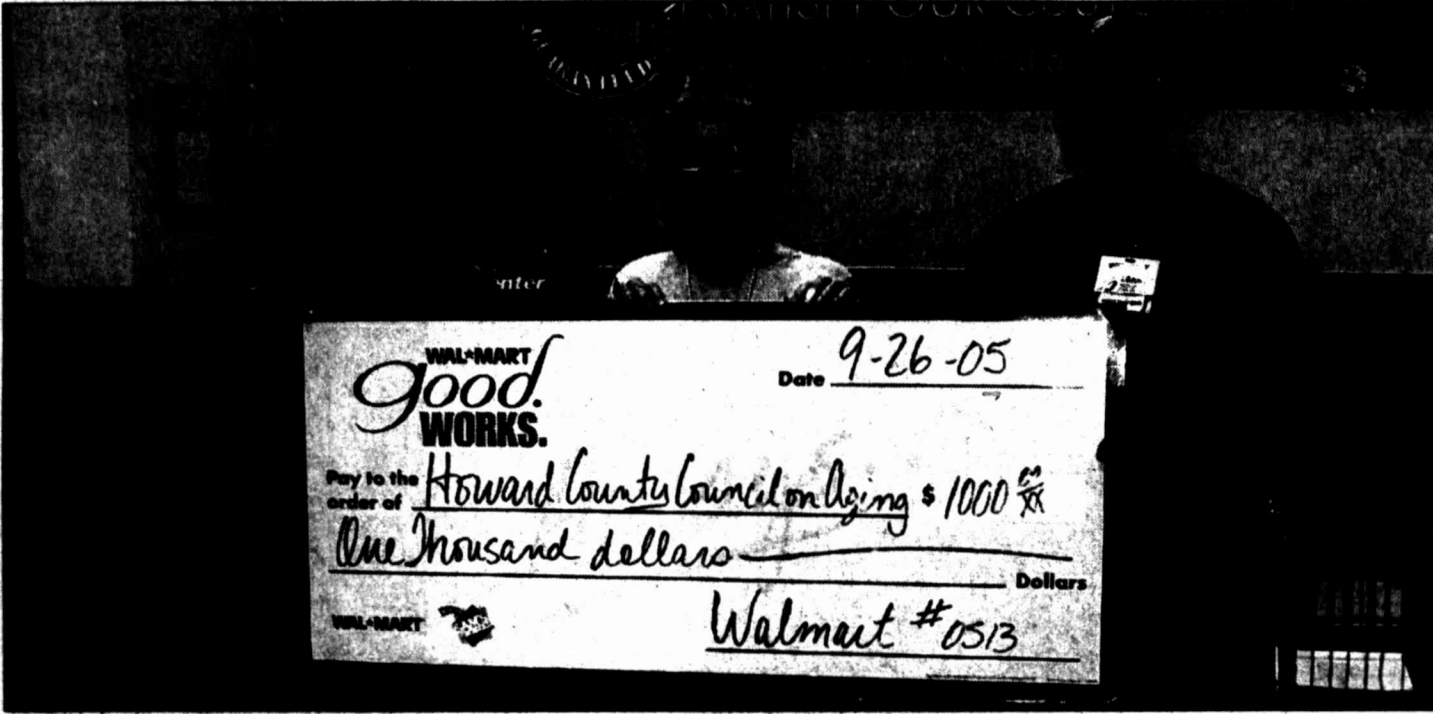 SATISFY OUR CUSTO
enter
WAL★MART
good.
WORKS.
Date 9-26-05
Pay to the
order of Howard County Council on Aging $ 1000 xx
One Thousand dollars
Dollars
WAL★MART
Walmart #0513